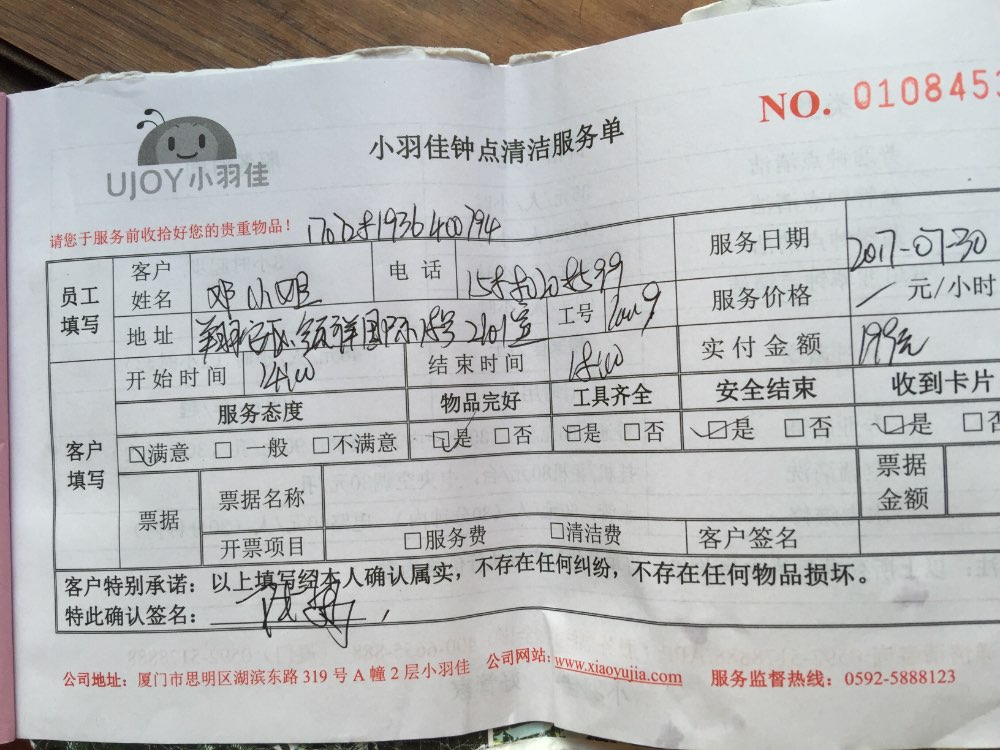 NO. 010845
小羽佳钟点清洁服务单
UJOY小羽佳
请您于服务前收拾好您的贵重物品！
员工填写 客户姓名 邓小姐 电话 服务日期 2017-07-30
地址 2601室 工号 服务价格 元/小时
开始时间 14:00 结束时间 18:00 实付金额 199元
客户填写 服务态度 物品完好 工具齐全 安全结束 收到卡片
☑满意 □一般 □不满意 ☑是 □否 ☑是 □否 ☑是 □否 ☑是 □否
票据 票据名称 票据金额
开票项目 □服务费 □清洁费 客户签名
客户特别承诺：以上填写经本人确认属实，不存在任何纠纷，不存在任何物品损坏。
特此确认签名：
公司地址：厦门市思明区湖滨东路 319 号 A 幢 2 层小羽佳 公司网站：www.xiaoyujia.com 服务监督热线：0592-5888123